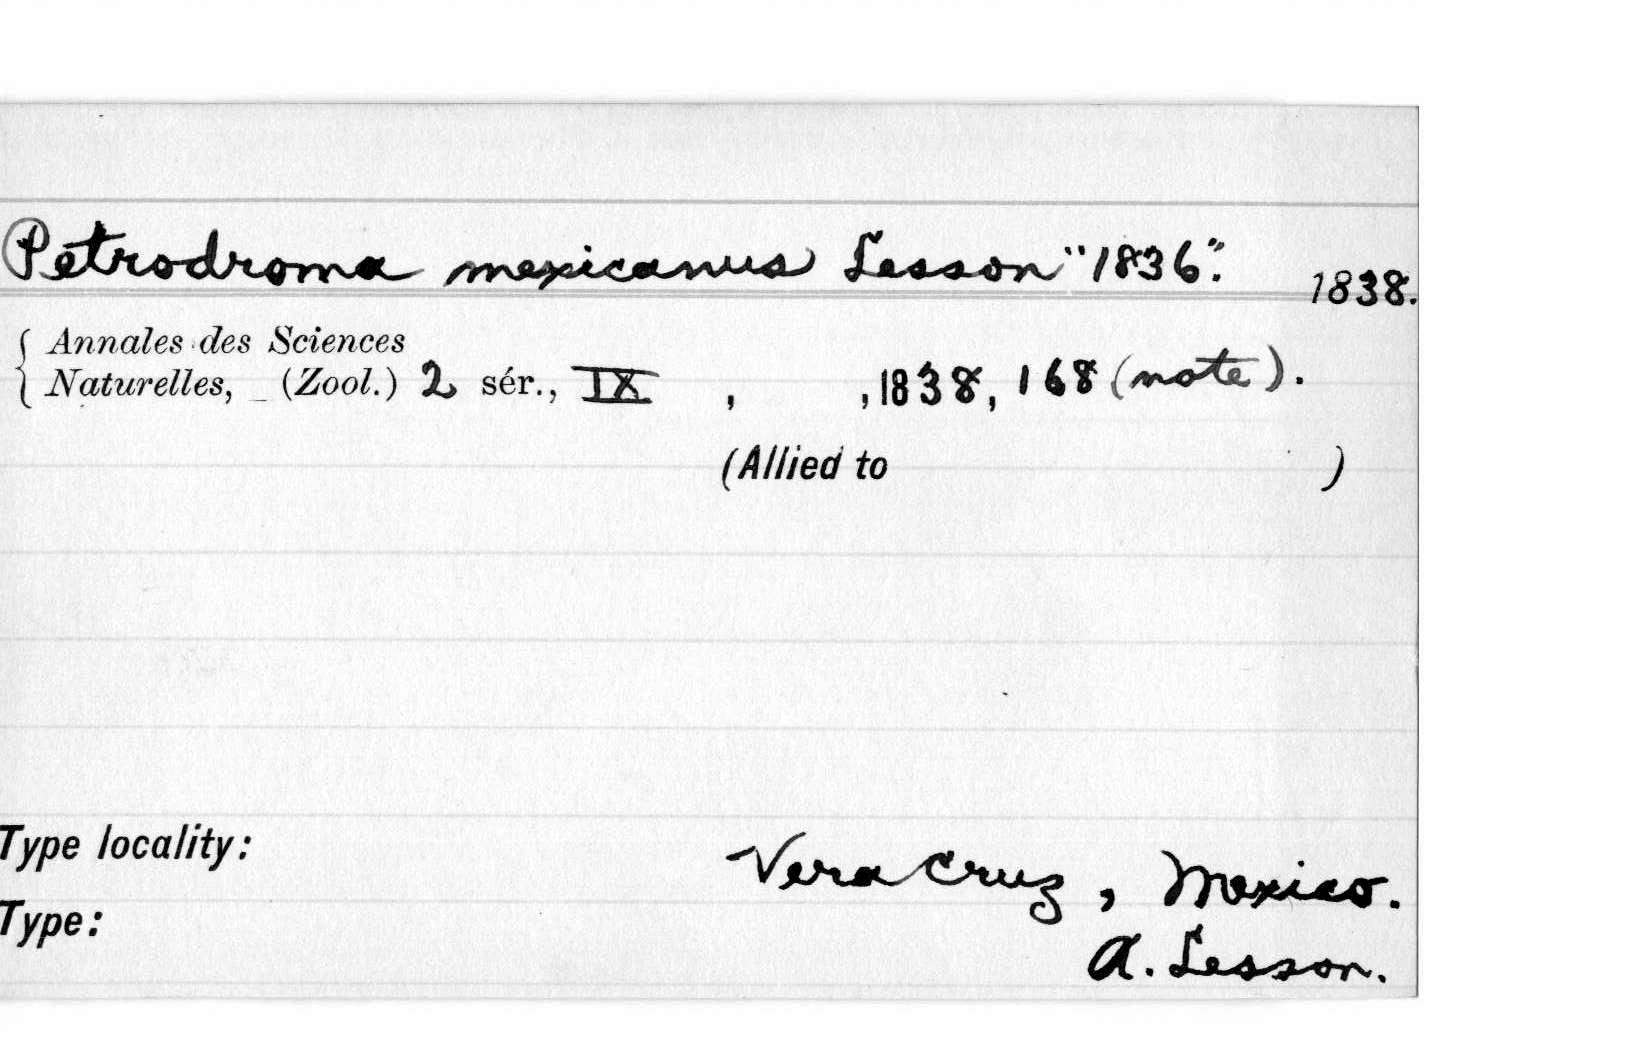 Petrodroma mexicanus Lesson "1836".
1838.
Annales des Sciences
Naturelles, (Zool.) 2 sér., IX , , 1838, 168 (note).
(Allied to )
Type locality:
Vera Cruz, Mexico.
Type:
A. Lesson.